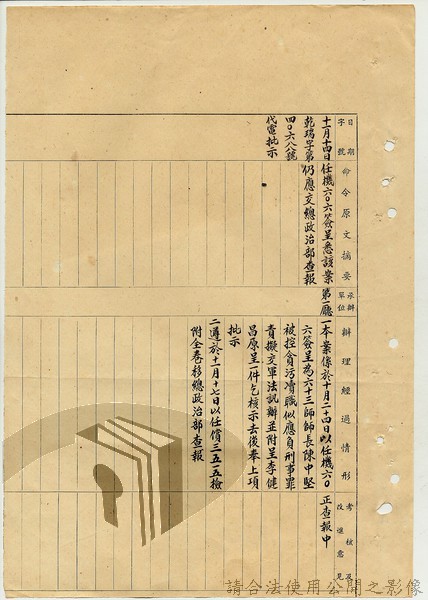 日期
字號
命令原文摘要
承辦單位
辦理經過情形
考核及改進意見
十一月十四日
乾瑞字第
四〇六八號
代電批示
任機六〇六簽呈悉該案
仍應交總政治部查報
第一廳
一本案係於十月二十四日以任機六〇
六簽呈為六十三師師長陳中堅
被控貪污瀆職似應負刑事罪
責擬交軍法訊辦並附呈李健
昌原呈一件乞核示去後奉上項
批示
二遵於十一月十七日以任償三五一五檢
附全卷移總政治部查報
正查報中
請合法使用公開之影像